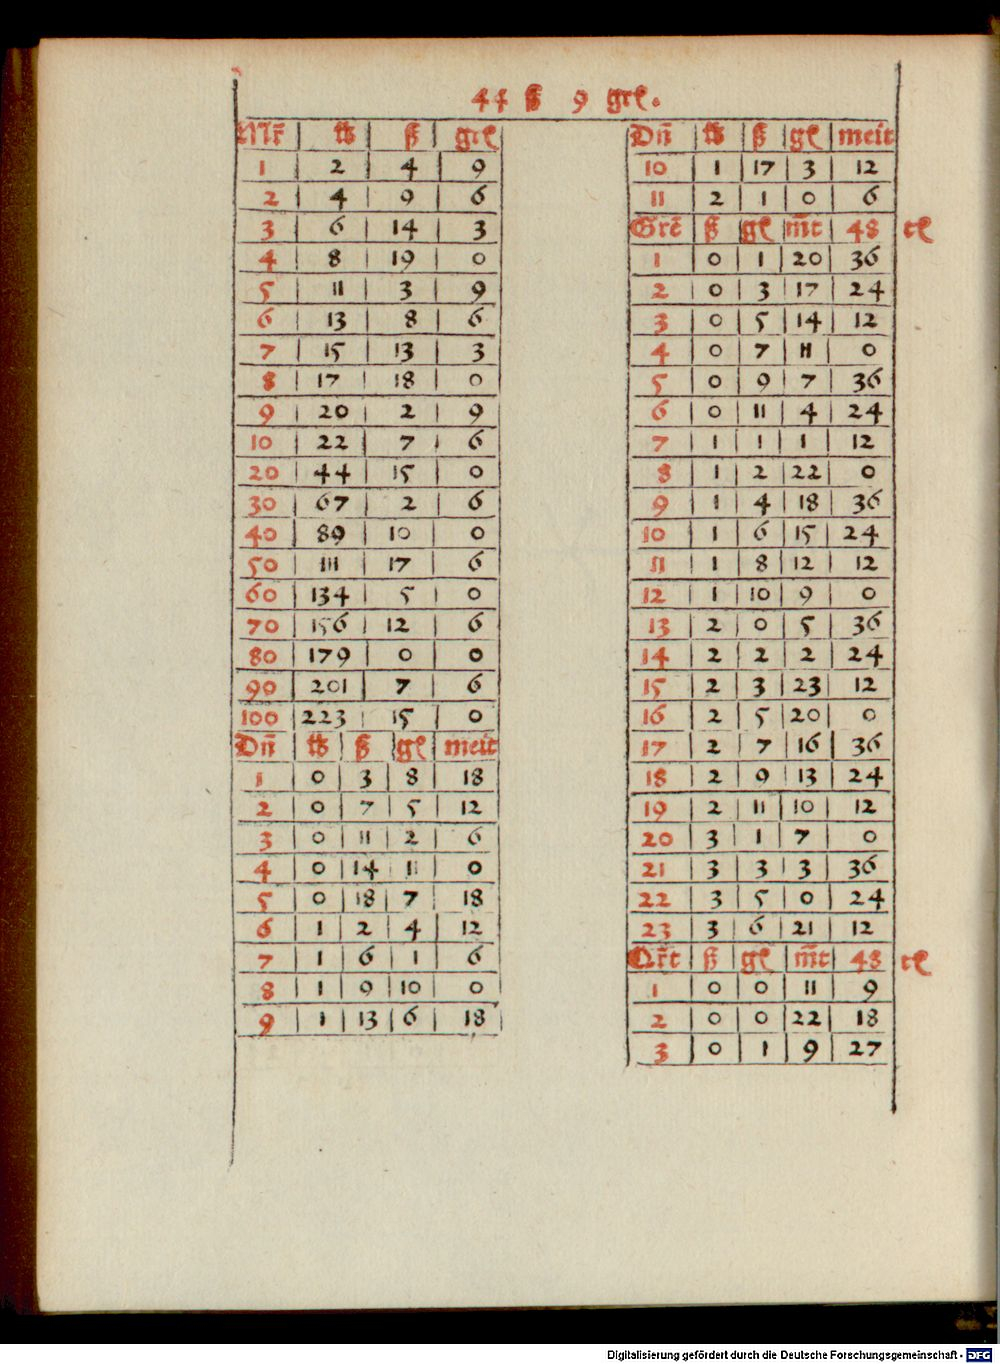 44 ß 9 grꝭ.
Mr̄ | lb | ß | grꝭ
1 | 2 | 4 | 9
2 | 4 | 9 | 6
3 | 6 | 14 | 3
4 | 8 | 19 | 0
5 | 11 | 3 | 9
6 | 13 | 8 | 6
7 | 15 | 13 | 3
8 | 17 | 18 | 0
9 | 20 | 2 | 9
10 | 22 | 7 | 6
20 | 44 | 15 | 0
30 | 67 | 2 | 6
40 | 89 | 10 | 0
50 | 111 | 17 | 6
60 | 134 | 5 | 0
70 | 156 | 12 | 6
80 | 179 | 0 | 0
90 | 201 | 7 | 6
100 | 223 | 15 | 0
Dn̄ | lb | ß | gꝭ | meit
1 | 0 | 3 | 8 | 18
2 | 0 | 7 | 5 | 12
3 | 0 | 11 | 2 | 6
4 | 0 | 14 | 11 | 0
5 | 0 | 18 | 7 | 18
6 | 1 | 2 | 4 | 12
7 | 1 | 6 | 1 | 6
8 | 1 | 9 | 10 | 0
9 | 1 | 13 | 6 | 18
Dn̄ | lb | ß | gꝭ | meit
10 | 1 | 17 | 3 | 12
11 | 2 | 1 | 0 | 6
Grē | ß | gꝭ | m̄t | 48 tꝭ
1 | 0 | 1 | 20 | 36
2 | 0 | 3 | 17 | 24
3 | 0 | 5 | 14 | 12
4 | 0 | 7 | 11 | 0
5 | 0 | 9 | 7 | 36
6 | 0 | 11 | 4 | 24
7 | 1 | 1 | 1 | 12
8 | 1 | 2 | 22 | 0
9 | 1 | 4 | 18 | 36
10 | 1 | 6 | 15 | 24
11 | 1 | 8 | 12 | 12
12 | 1 | 10 | 9 | 0
13 | 2 | 0 | 5 | 36
14 | 2 | 2 | 2 | 24
15 | 2 | 3 | 23 | 12
16 | 2 | 5 | 20 | 0
17 | 2 | 7 | 16 | 36
18 | 2 | 9 | 13 | 24
19 | 2 | 11 | 10 | 12
20 | 3 | 1 | 7 | 0
21 | 3 | 3 | 3 | 36
22 | 3 | 5 | 0 | 24
23 | 3 | 6 | 21 | 12
Qr̄t | ß | gꝭ | m̄t | 48 tꝭ
1 | 0 | 0 | 11 | 9
2 | 0 | 0 | 22 | 18
3 | 0 | 1 | 9 | 27
Digitalisierung gefördert durch die Deutsche Forschungsgemeinschaft - DFG